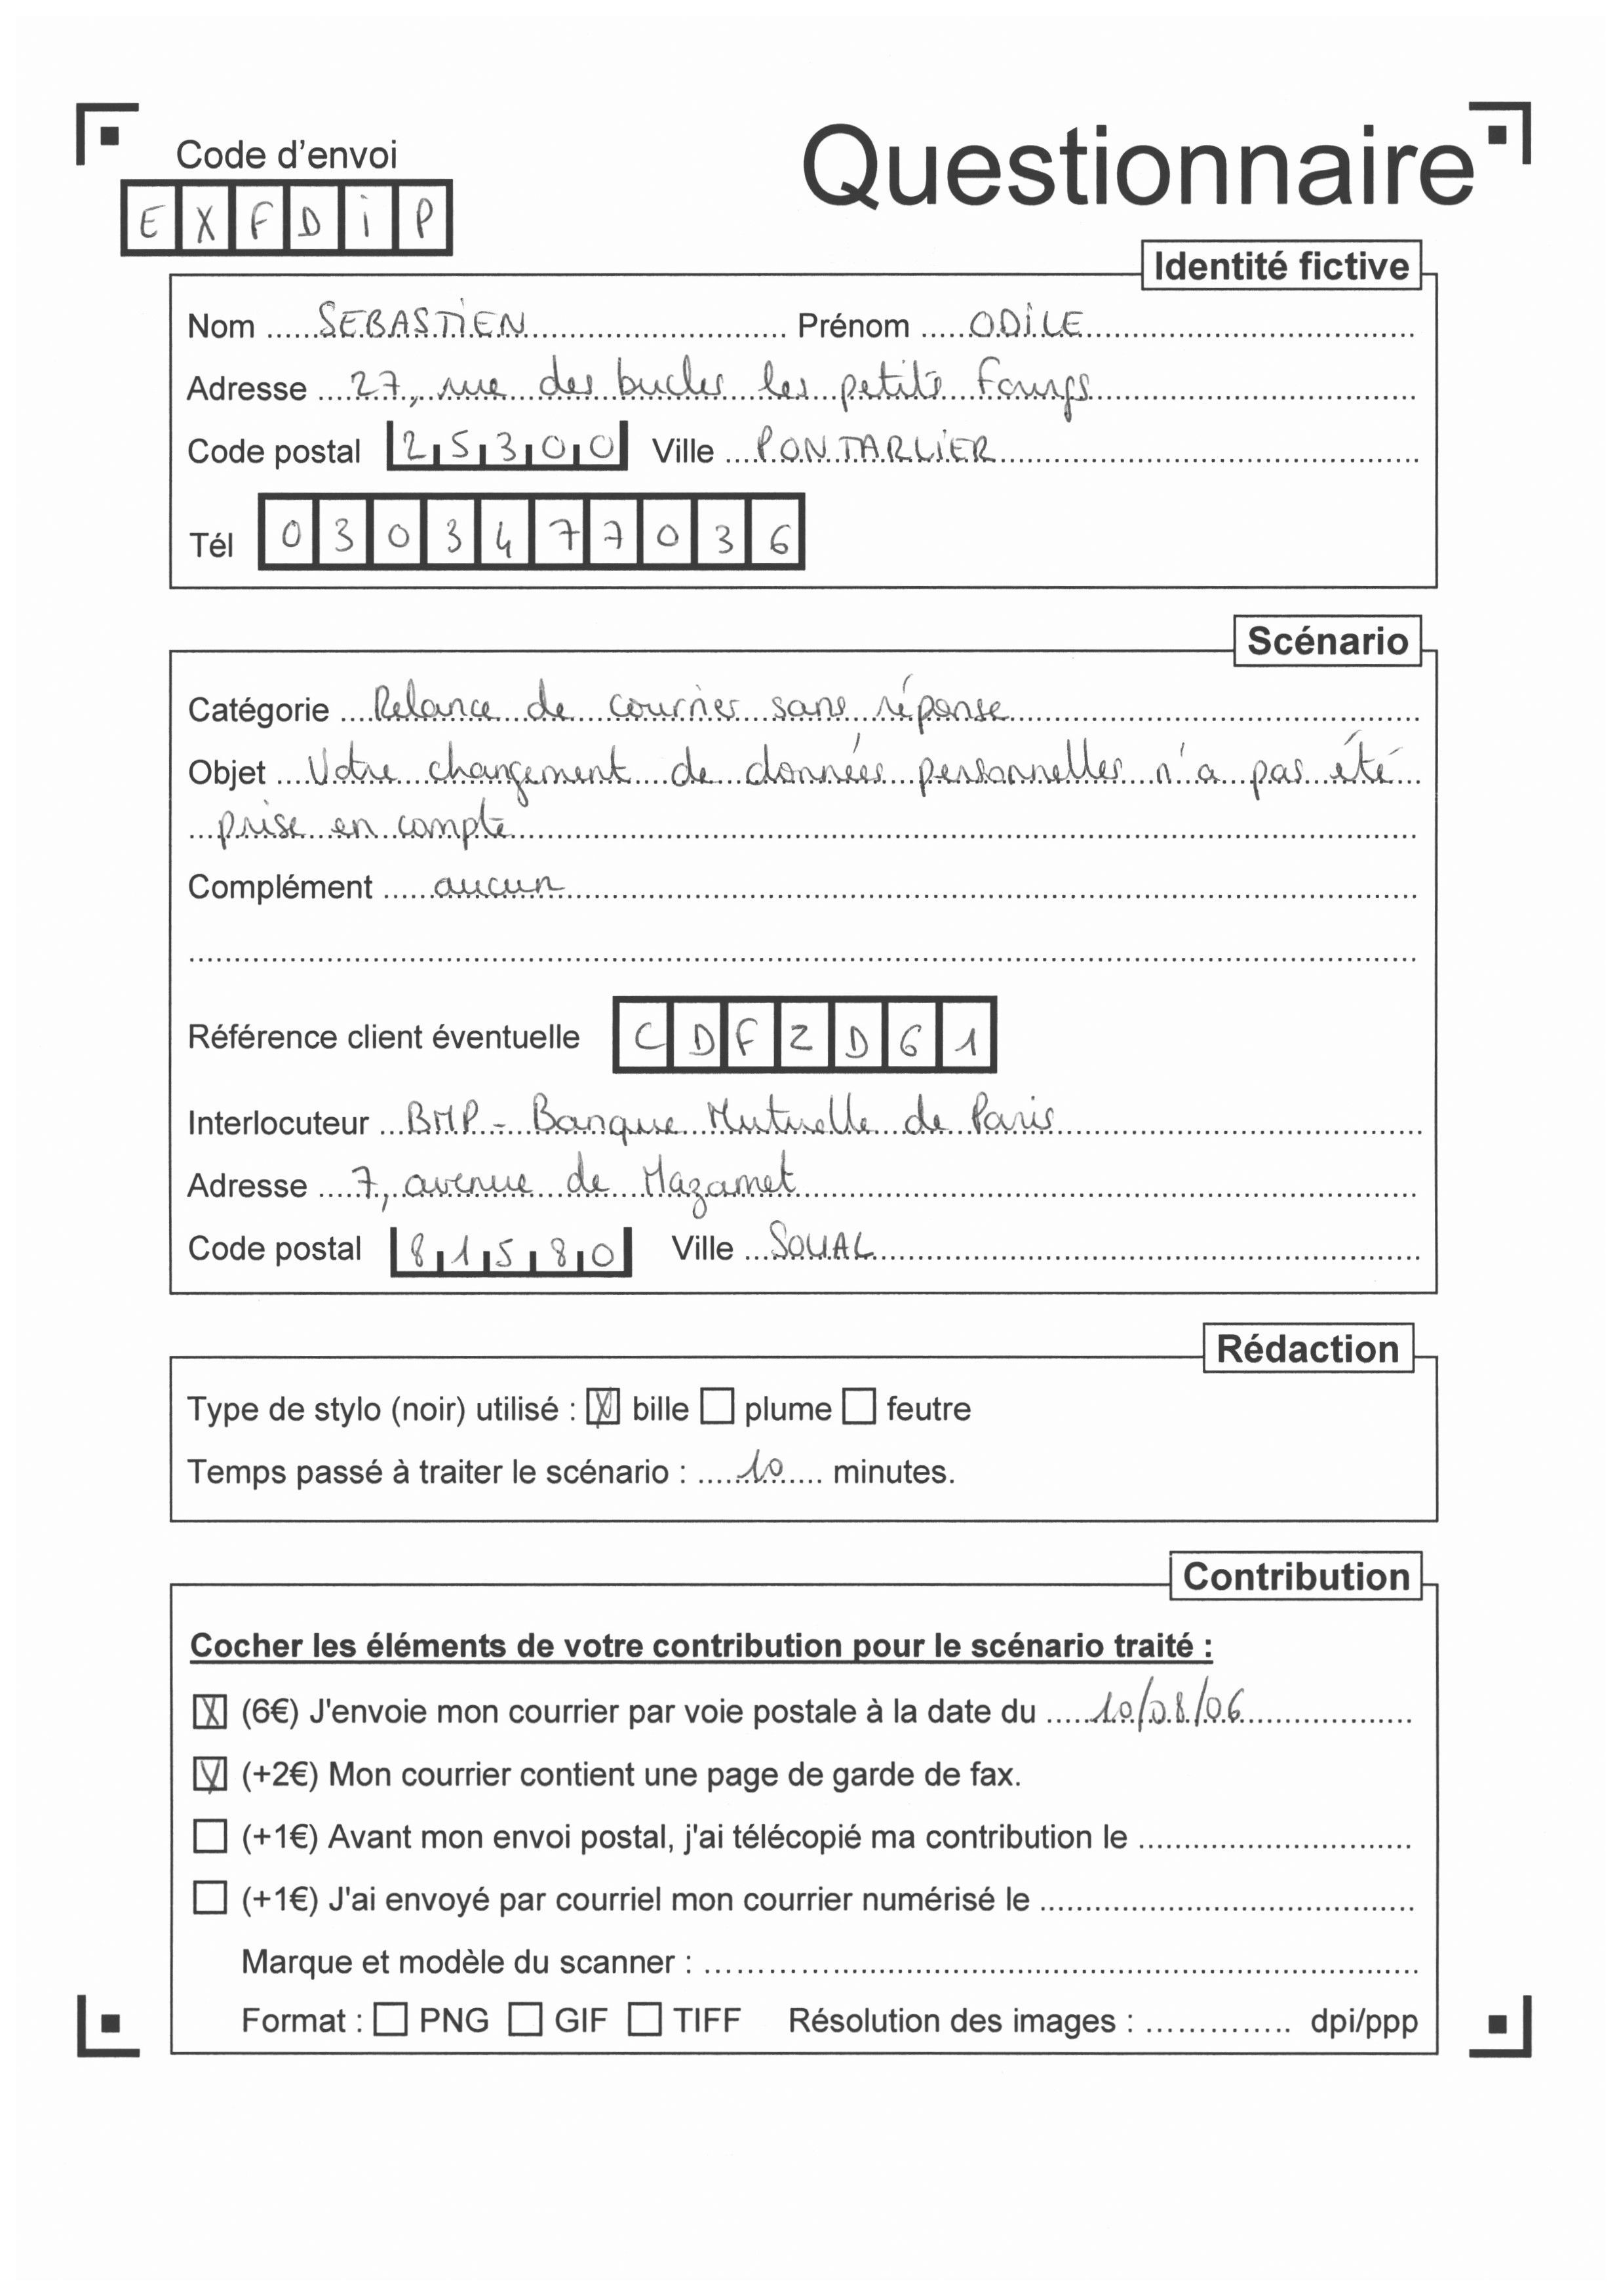 Code d'envoi
EXFDiP
Questionnaire
Identité fictive
Nom SEBASTiEN Prénom ODiLE
Adresse 27, rue des bucles les petits Fourgs
Code postal 25300 Ville PONTARLiER
Tél 0303477036
Scénario
Catégorie Relance de courrier sans réponse
Objet Votre changement de données personnelles n'a pas été
prise en compte
Complément aucun
Référence client éventuelle CDFZD61
Interlocuteur BMP - Banque Mutuelle de Paris
Adresse 7, avenue de Mazamet
Code postal 81580 Ville SOUAL
Rédaction
Type de stylo (noir) utilisé : bille plume feutre
Temps passé à traiter le scénario : 10 minutes.
Contribution
Cocher les éléments de votre contribution pour le scénario traité :
(6€) J'envoie mon courrier par voie postale à la date du 10/08/06
(+2€) Mon courrier contient une page de garde de fax.
(+1€) Avant mon envoi postal, j'ai télécopié ma contribution le
(+1€) J'ai envoyé par courriel mon courrier numérisé le
Marque et modèle du scanner :
Format : PNG GIF TIFF Résolution des images : dpi/ppp